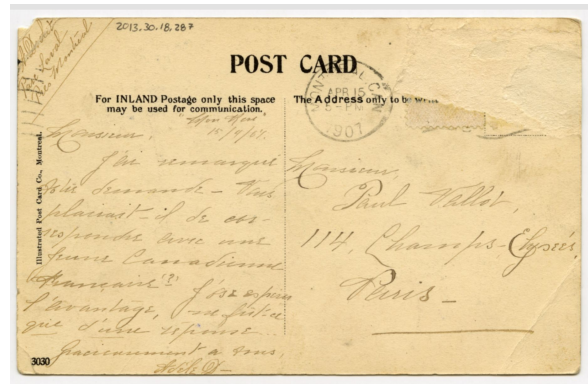 2013.30.18.287
POST CARD
For INLAND Postage only this space
may be used for communication.
The Address only to be
MONTREAL CAN
APR 15
5-PM
1907
Illustrated Post Card Co., Montreal.
Monsieur,
J'ai remarqué
demande - Vous
plairait-il de cor-
respondre avec une
jeune Canadienne
Française (?) J'ose espérer
l'avantage, ne fut-ce
que d'une réponse
Gracieusement à vous,
Monsieur,
Paul Vallot,
114, Champs-Elysées,
Paris -
3030